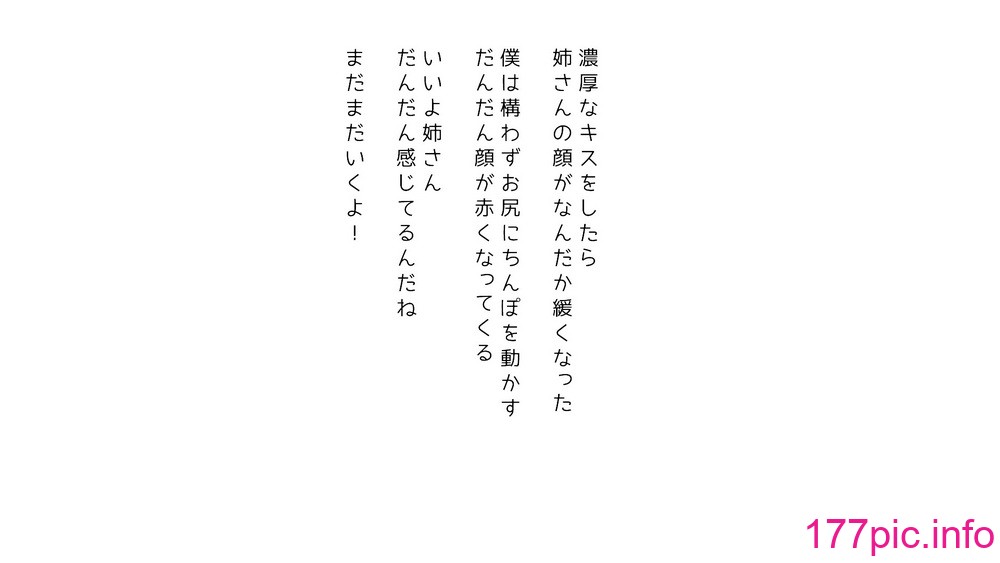 濃厚なキスをしたら
姉さんの顔がなんだか緩くなった
僕は構わずお尻にちんぽを動かす
だんだん顔が赤くなってくる
いいよ姉さん
だんだん感じてるんだね
まだまだいくよ！
177pic.info